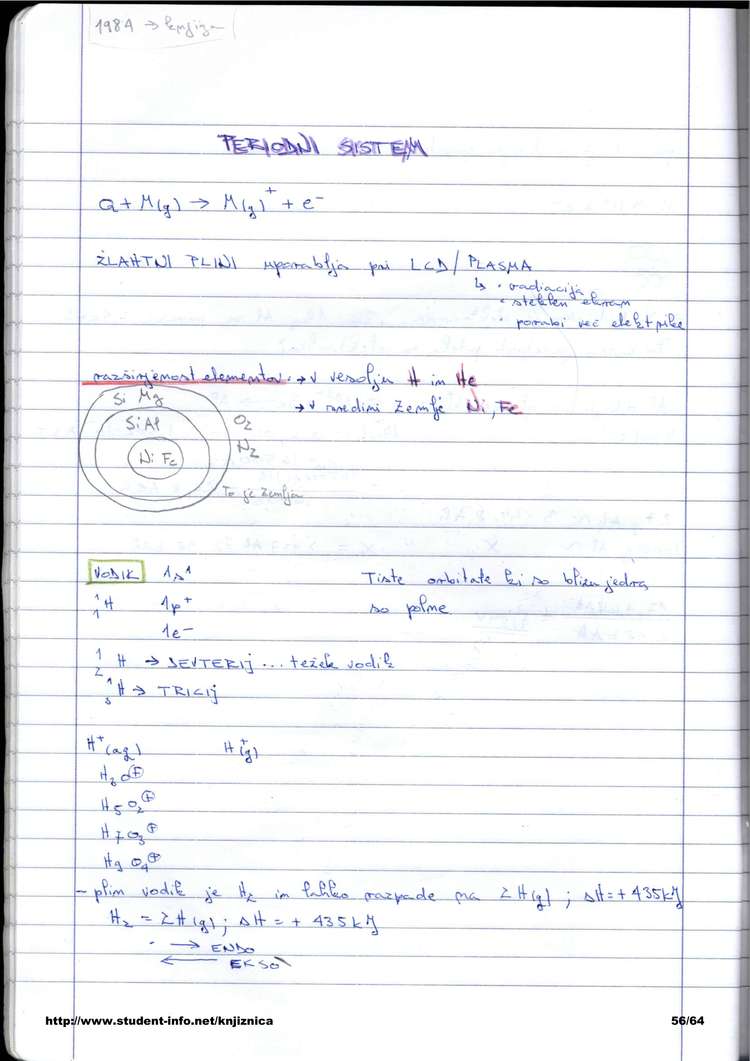 1984 → knjiga
PERIODNI SISTEM
Q + M(g) → M(g)⁺ + e⁻
ŽLAHTNI PLINI uporablja pri LCD / PLASMA
↳ · radiacija
· steklen ekran
· porabi več elektrike
razširjenost elementov: → v vesolju H in He
→ v sredini Zemlje Ni, Fe
Si Mg
Si Al
O₂
Ni Fe
N₂
To je Zemlja
VODIK 1s¹
Tiste orbitale ki so blizu jedra
¹₁H 1p⁺
so polne
1e⁻
¹₂H → DEVTERIJ ... težek vodik
¹₃H → TRICIJ
H⁺(aq) H⁺(g)
H₃O⊕
H₅O₂⊕
H₇O₃⊕
H₉O₄⊕
- plin vodik je H₂ in lahko razpade na 2H(g) ; ΔH = + 435 kJ
H₂ = 2H(g) ; ΔH = + 435 kJ
→ ENDO
← EKSO
http://www.student-info.net/knjiznica
56/64